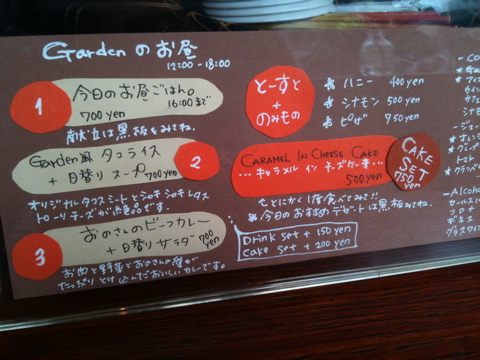 Gardenのお昼
12:00-18:00
1
今日のお昼ごはん。
700 yen 16:00まで
献立は黒板をみてね。
Garden風 タコライス
+日替り スープ 700yen
2
オリジナルタコスミートとシャキシャキレタス
おのさんのビーフカレー
+日替り サラダ 700 yen
3
お肉と野菜とおのさんの愛が
たっぷりとけ込んだおいしいカレーです。
とーすと
+
のみもの
ハニー 400yen
シナモン 500yen
ピザ 750yen
CARAMEL IN CHEESE CAKE
...キャラメル インチーズケーキ...
500yen
CAKE
SET
750
yen
★今日のおすすめデザートは黒板をみてね。
Drink set + 150 yen
Cake set + 200 yen
トマト
-A(coho